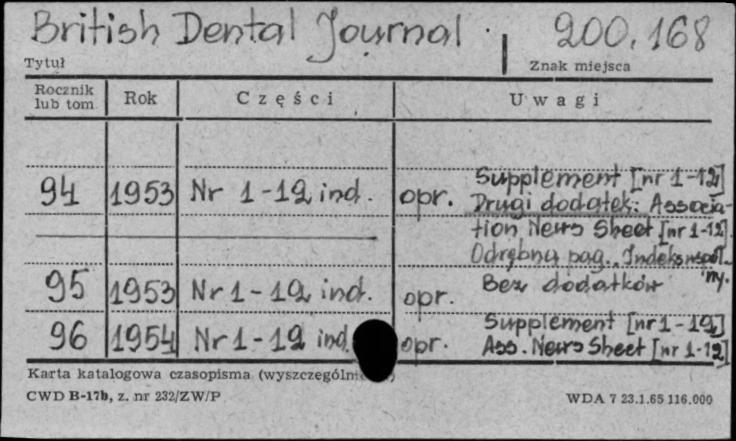 British Dental Journal 200.168
Tytuł Znak miejsca
Rocznik lub tom Rok Części Uwagi
94 1953 Nr 1-12 ind. opr. Supplement [nr 1-12]
Drugi dodatek: Associa-
tion News Sheet [nr 1-12].
Odrębna pag. Indeks wspól-
ny.
95 1953 Nr 1-12 ind. opr. Bez dodatków
96 1954 Nr 1-12 ind opr. Supplement [nr 1-12]
Ass. News Sheet [nr 1-12]
Karta katalogowa czasopisma
CWD B-17b, z. nr 232/ZW/P WDA 7 23.1.65 116.000